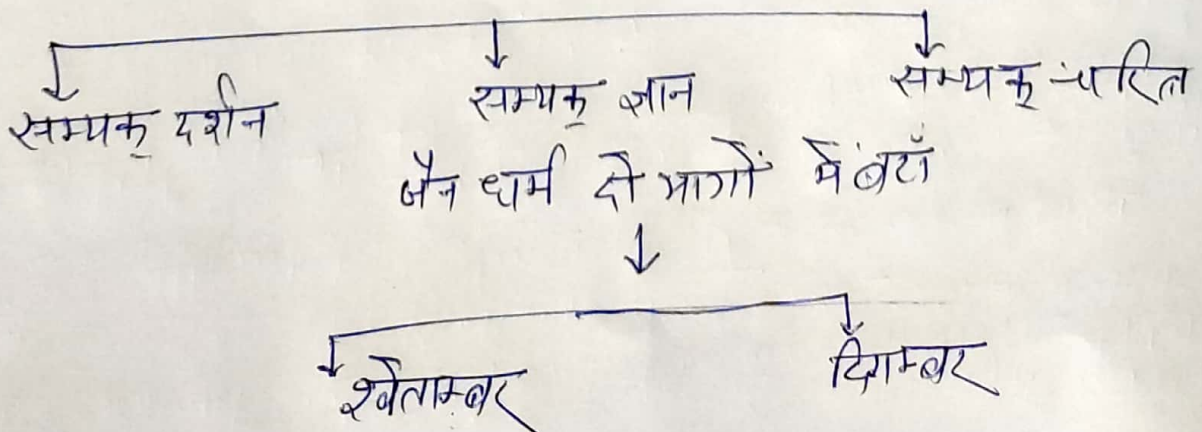 सम्यक् दर्शन सम्यक् ज्ञान सम्यक् चरित्र
जैन धर्म दो भागों में बंटाँ
श्वेताम्बर दिगम्बर